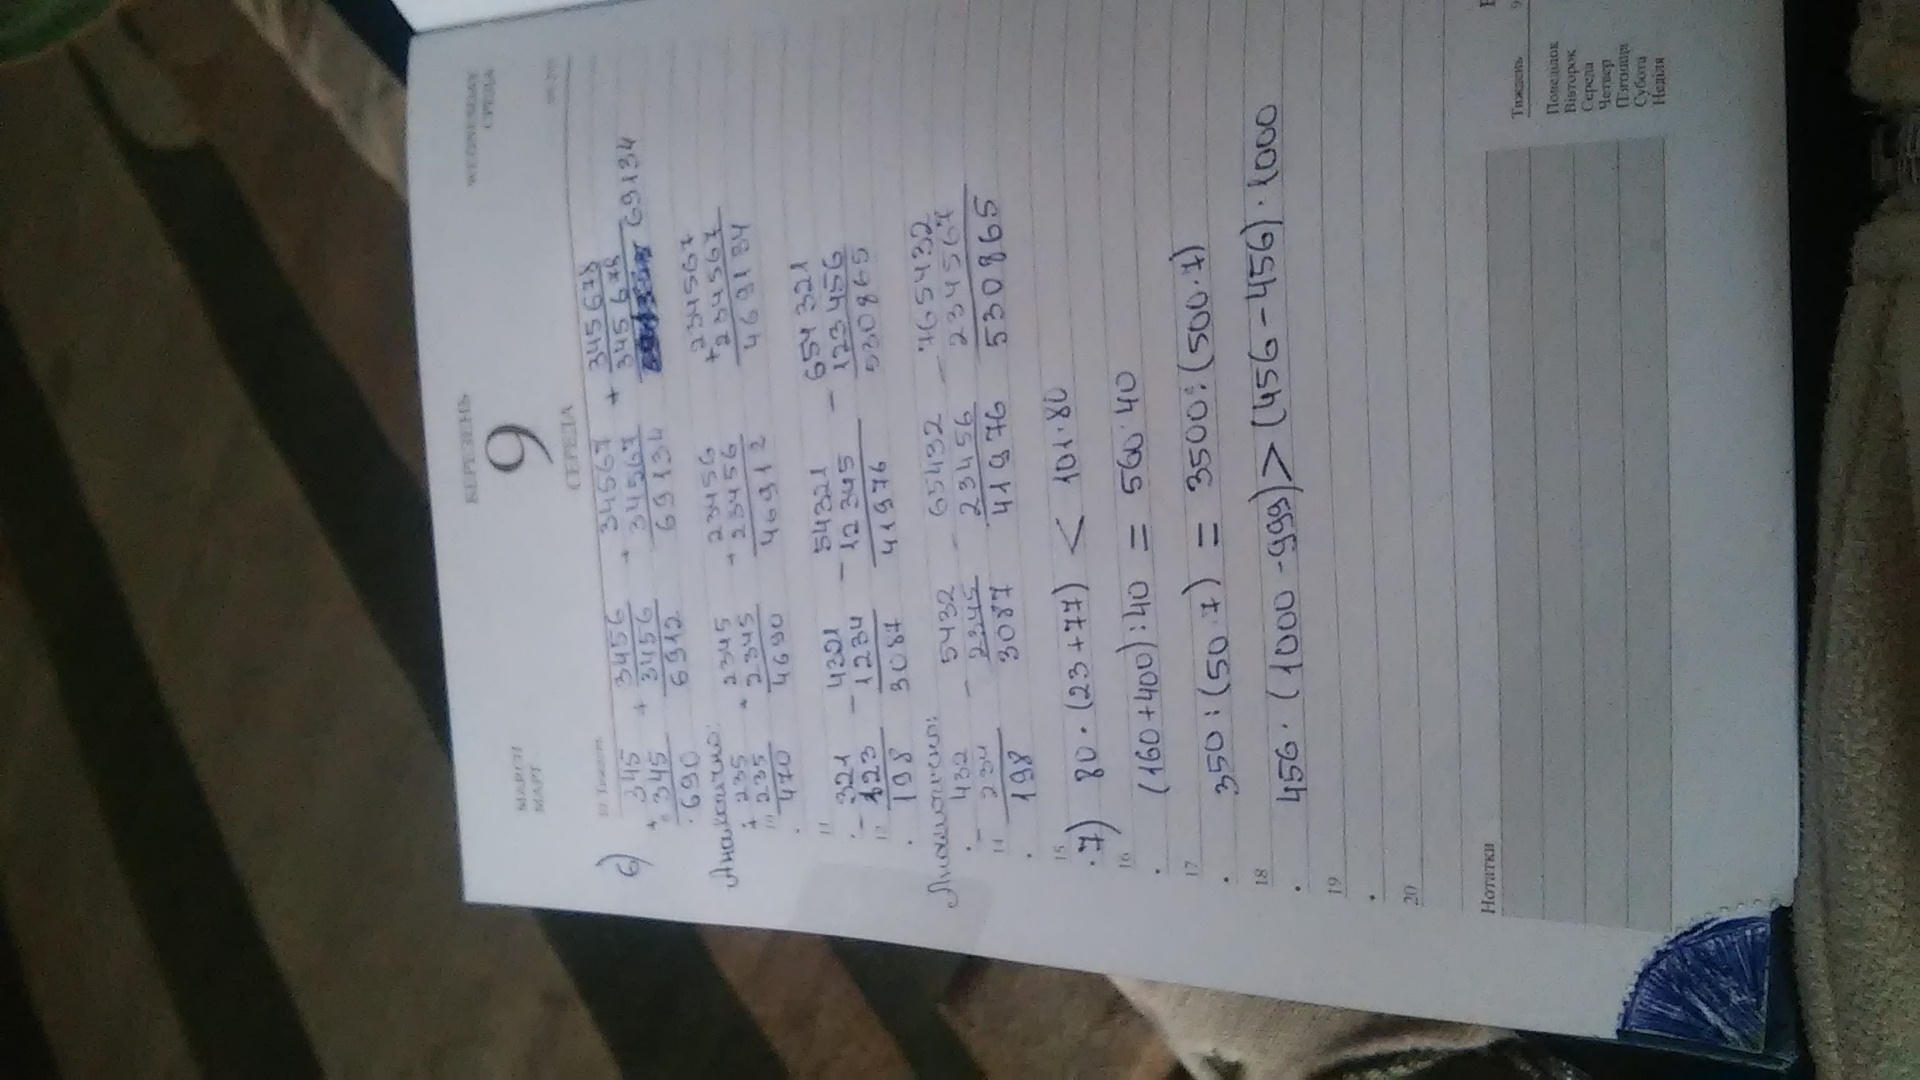 БЕРЕЗЕНЬ
9
СЕРЕДА
МАРТ
СРЕДА
6)
+ 345 + 3456 + 34567 + 345678
345 3456 34567 345678
690 6912 69134 69134
Аналогично:
+ 235 + 2345 + 23456 + 234567
235 2345 23456 234567
470 4690 46912 469134
11
- 321 - 4321 - 54321 - 654321
123 1234 12345 123456
12
198 3087 41976 530865
Аналогично:
- 432 - 5432 - 65432 - 765432
234 2345 23456 234567
14
198 3087 41976 530865
15
7) 80·(23+77) < 101·80
16
(160+400):40 = 560:40
17
350:(50·7) = 3500:(500·7)
18
456·(1000-999) > (456-456)·1000
19
20
Нотатки
Тиждень 9
Понеділок
Вівторок
Середа
Четвер
П'ятниця
Субота
Неділя